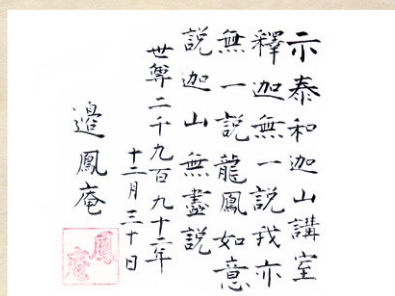 示泰和迦山講室
釋迦無一說我亦
無一說龍鳳如意
說迦山無盡說
世尊二千九百九十六年
十二月三十日
邉鳳庵
鳳庵